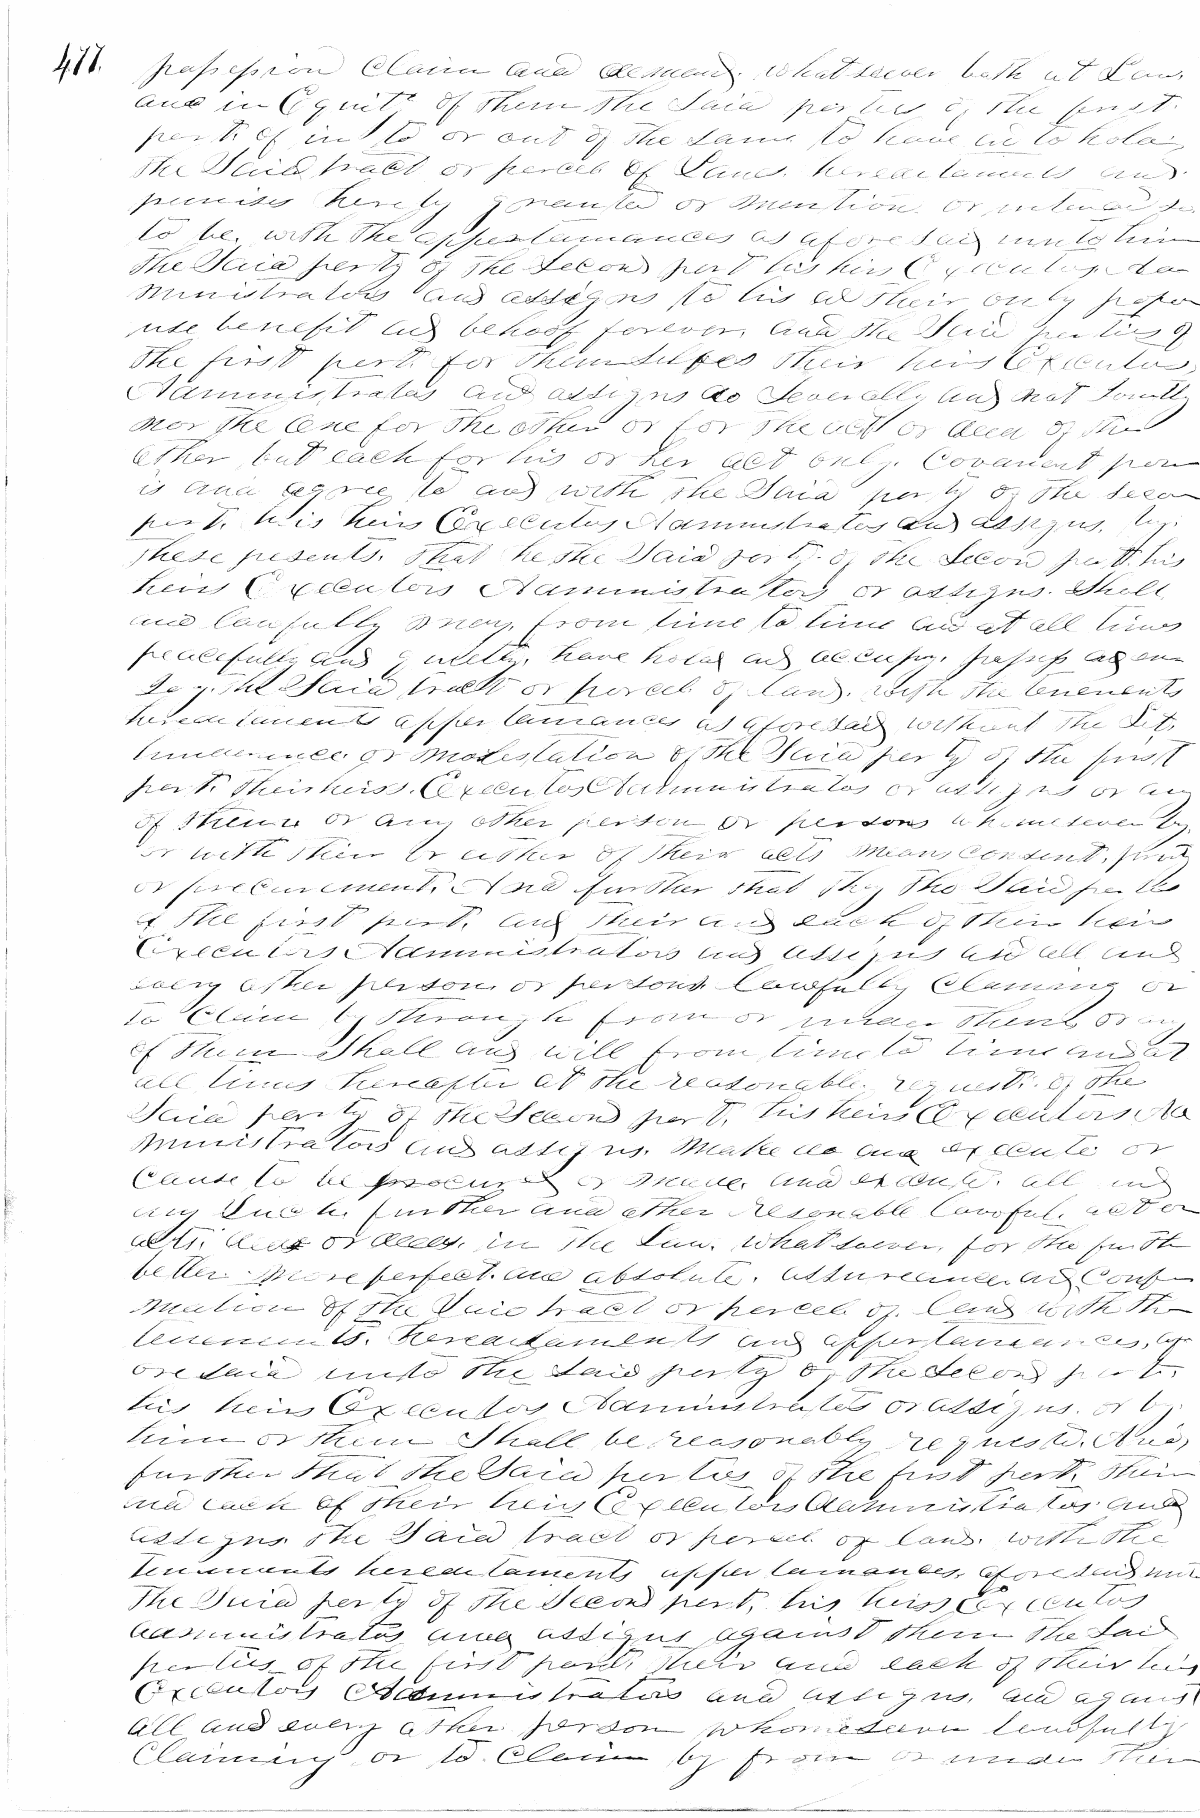 477.
possession Claim and demand. whatsoever both at Law.
and in Equit of them the Said parties of the first.
part. of in to or out of the same to have an to hold
the Said tract or parcel of Land. hereditaments and
premises hereby granted or mention or intended so
to be. with the appertainances as aforesaid unto him
the Said party of the Second part his heirs Executors Ad
ministrators and assigns to his and their only proper
use benefit and behoof forever. and the Said parties of
the first part. for themselves their heirs Executors,
Administrators and assigns do Severally and not Jointly
nor the one for the other or for the act or deed of the
other but each for his or her act only. Covanent prom
is and agree to and with the Said party of the Secon
part. his heirs Executors Administrators and assigns. by.
these presents. that he the Said party. of the Secon part his
heirs Executors Administrators or assigns. Shall
and lawfully may. from time to time and at all times
peacefully and quietly. have hold and occupy. possess and en
Joy. the Said tract or parcel of land. with the tenements
hereditaments appertainances as aforesaid without the Let.
hinderance or molestation of the Said party of the first
part. their heirs. Executors Administrators or assigns or any
of them or any other person or persons whomesoever by.
or with their or either of their acts means consent. privity
or procurement. And further that they the Said parties
of the first part. and their and each of their heirs
Executors Administrators and assigns and all and
every other person or persons lawfully Claiming or
to Claim by through from or under them or any
of them Shall and will from time to time and at
all times hereafter at the reasonable. request. of the
Said party of the Second part. his heirs Executors Ad
ministrators and assigns. make do and execute or
Cause to be procured or made. and execute. all and
any Such. further and other resonable lawful. act or
acts. deed or deeds. in the Law. whatsoever. for the furth
better more perfect. and absolute. assureance. and Confir
mation of the Said tract or parcel of. land with the
tenements. hereditaments and appertainances. af
oresaid unto the Said party of the Second part.
his heirs Executors Administrators or assigns. or by
him or them Shall be reasonably requestd. And,
further that the Said parties of the first part. their
and each of their heirs Executors Administrators and
assigns. the Said tract or parcel of land. with the
tenements hereditaments appertainances. aforesaid unto
the Said party of the Second part, his heirs Executors
administrators and assigns against them the Said
parties of the first part. their and each of their heirs
Executors Administrators and assigns. and against
all and every other person whomesoever lawfully
Claiming or to Claim by from or under them